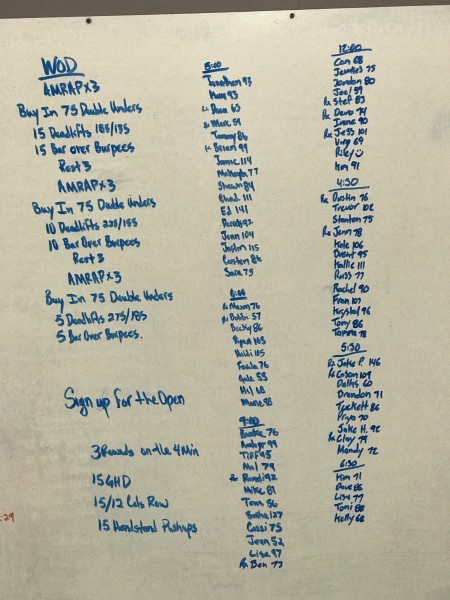 WOD
AMRAP x 3
Buy In 75 Double Unders
15 Deadlifts 185/135
15 Bar over Burpees
Rest 3
AMRAP x 3
Buy In 75 Double Unders
10 Deadlifts 225/155
10 Bar Over Burpees
Rest 3
AMRAP x 3
Buy In 75 Double Unders
5 Deadlifts 275/185
5 Bar Over Burpees.
Sign up for the Open
3 Rounds on the 4 Min
15 GHD
15/12 Cals Row
15 Handstand Pushups
:29
5:00
Jonathan 93
93
63
Marc 59
Tommy 86
Brian 99
Jamie 114
Makayla 77
Shawn 84
Chad 111
Ed 141
92
Jenn 104
Justin 115
Carsten 86
Sara 75
6:00
Rx Mason 76
Rx Bobbi 57
Becky 86
Ryan 103
Heidi 105
76
Gale 55
Mel 68
Marie 98
9:00
Brooke 76
99
Tiff 95
Mal 79
Rx Randi 92
Mike 81
Tom 56
Sasha 127
Cassi 75
Jean 52
Lisa 97
Rx Ben 73
12:00
Cam 68
75
Jordan 80
Joel 59
Rx Stef 83
Rx Devo 74
Irene 90
Rx Jess 101
69
Riley
Kim 91
4:30
Rx Dustin 76
Trevor 102
Stanton 75
Rx Jenn 78
Kale 106
Brent 95
Kallie 111
Russ 77
Rachel 90
Fran 107
Krystal 96
Tony 86
Tamra 78
5:30
Rx Jake P. 146
Rx Cason 109
Dallis 60
Brandon 71
Tuckett 86
Priyo 70
Jake H. 92
Rx Clay 79
Mandy 72
6:30
Kim 71
Dave 86
Lisa 77
Toni 88
Kelly 68